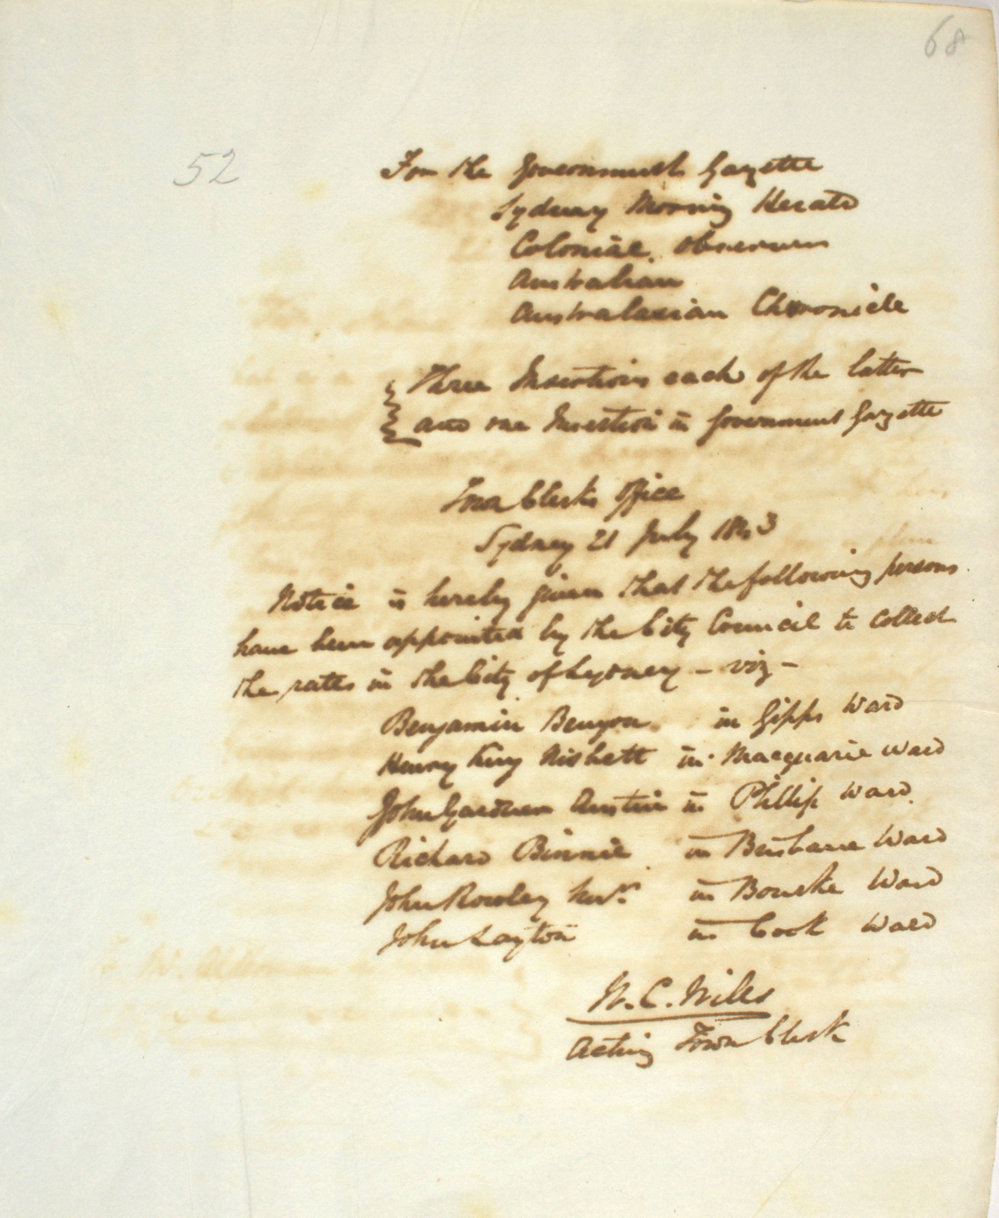 68
52
For the Government Gazette
Sydney Morning Herald
Colonial Observer
Australian
Australasian Chronicle
Three Insertions each of the latter
and one Insertion in Government Gazette
Town Clerks Office
Sydney 21 July 1843
Notice is hereby given that the following persons
have been appointed by the City Council to collect
the rates in the City of Sydney - viz -
Benjamin Benyon in Gipps Ward
Henry King Nisbett in Macquarie Ward
John Gardner Austin in Phillip Ward
Richard Binnie in Brisbane Ward
John Rowley in Bourke Ward
John Layton in Cook Ward
W. C. Wiles
Acting Town Clerk